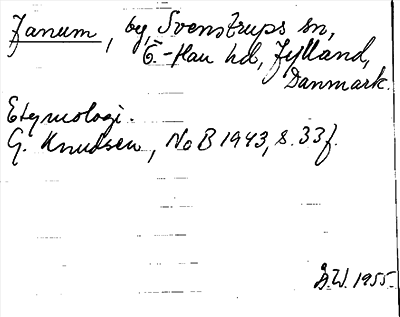 Janum, by, Svenstrups sn,
Ö.-Han hd, Jylland,
Danmark.
Etymologi.
G. Knudsen, NoB 1943, s. 33f.
D.W. 1955.